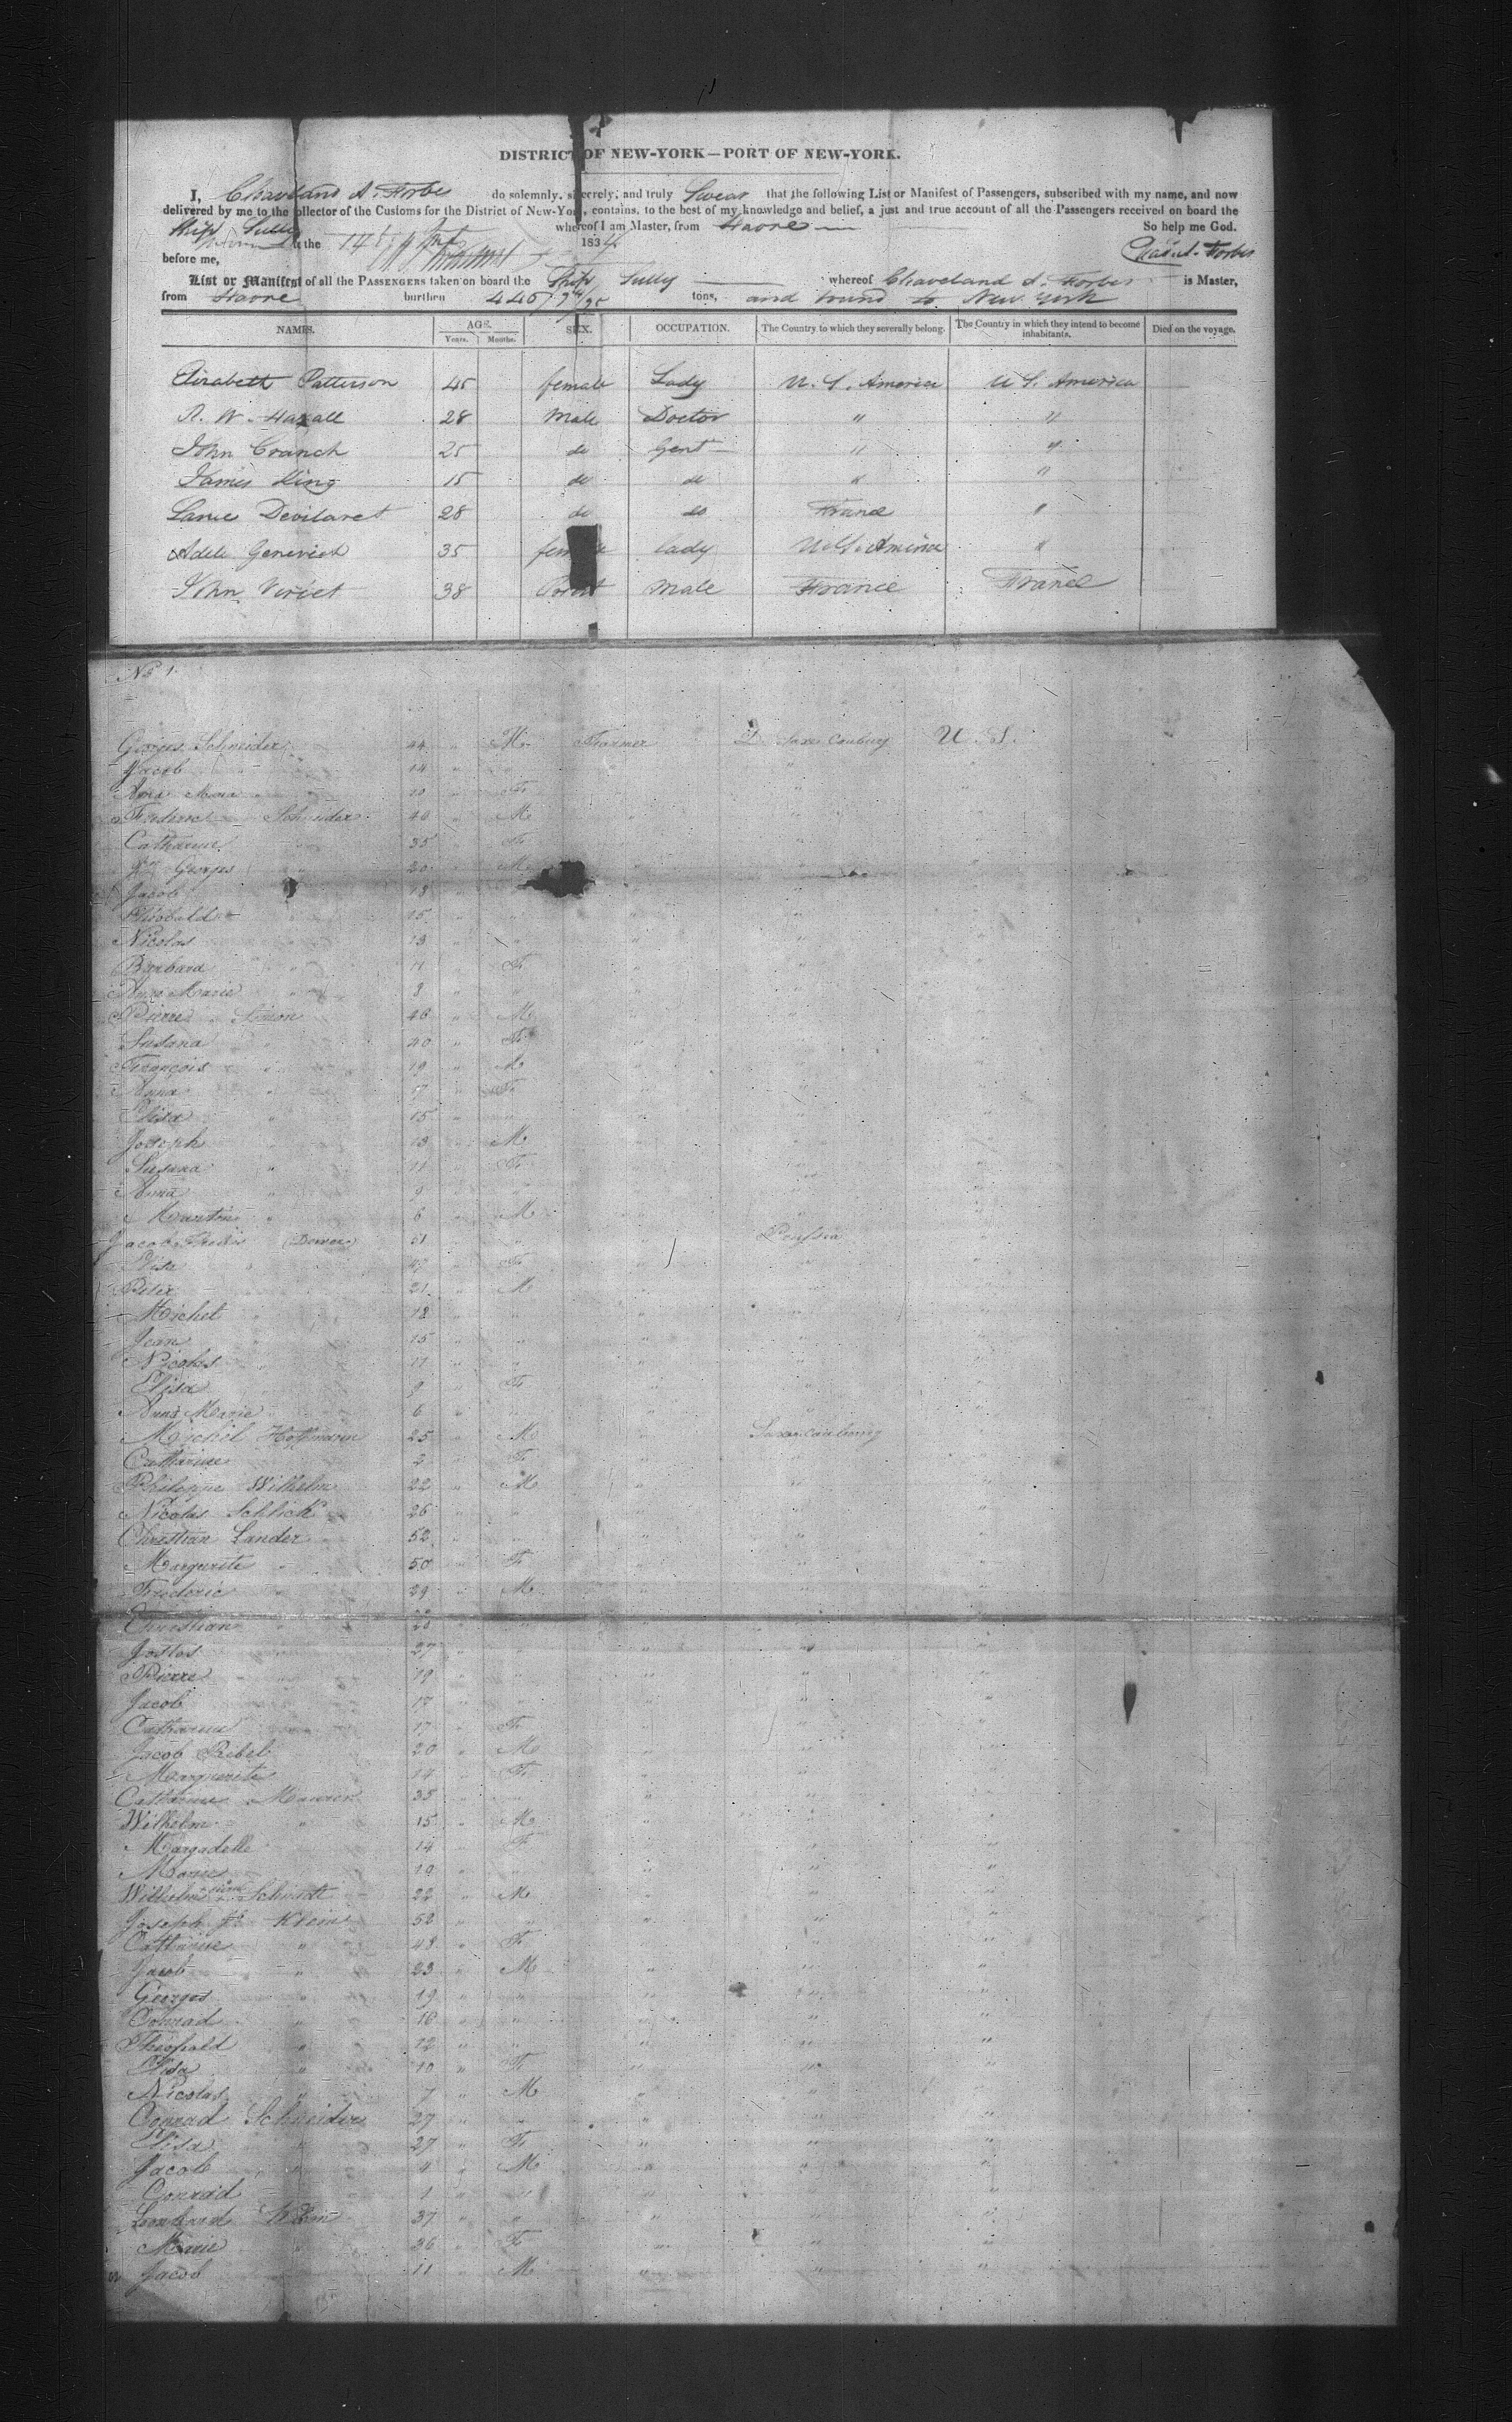 DISTRICT OF NEW-YORK—PORT OF NEW-YORK.
I, Cleaveland A. Forbes do solemnly, sincerely, and truly Swear that the following List or Manifest of Passengers, subscribed with my name, and now
delivered by me to the Collector of the Customs for the District of New-York, contains, to the best of my knowledge and belief, a just and true account of all the Passengers received on board the
Ship Sully whereof I am Master, from Havre So help me God.
the 14th 1834 A. Forbes
before me,
List or Manifest of all the PASSENGERS taken on board the Ship Sully whereof Cleaveland A. Forbes is Master,
from Havre burthen 446 tons, and bound to New York
NAMES. AGE. SEX. OCCUPATION. The Country to which they severally belong. The Country in which they intend to become inhabitants. Died on the voyage.
Years. Months.
Elizabeth Patterson 45 female Lady U. S. America U S. America
A. W. Haxall 28 Male Doctor " "
John Cranch 25 do Gent " "
James King 15 do do " "
Devilaret 28 do do France "
Adele 35 female lady U. S. America "
John 38 Male France France
No 1.
Georges Schneider 44 " M. Farmer D. Saxe Couburg U. S.
Jacob " 14 " " " "
Anna Maria " 10 " F. " "
Frederic Schneider 40 " M " " "
Catharine " 35 " F " "
Georges " 20 " M " " "
Jacob " 18 " " "
Theobald " 15 " " " "
Nicolas " 13 " " " " "
Barbara " 11 " F " " "
Anna Marie " 8 " " " " "
Pierre Simon 46 " M " "
Susana " 40 " F " "
François " 19 " M " "
Anna " 17 " F " "
Elisa " 15 " " " "
Joseph " 13 " M " "
Susana " 11 " F " "
Anna " 9 " " " "
Martin " 6 " M " "
Jacob 51 " " " Prussia "
Elisa " 47 " F " " "
Peter " 21 " M " "
Michel " 18 " " " " "
Jean " 15 " " " " "
Nicolas " 11 " " " " "
Elisa " 9 " F " " "
Anna Marie " 6 " " " "
Michel Hoffmann 25 " M " Saxe Coubourg "
Catharine " 2 " F " " "
Philippe Wilhelm 22 " M " " "
Nicolas Schlick 26 " " " " "
Christian Lander 52 " " " " "
Marguerite " 50 " F " " "
Frederic " 29 " M " " "
Christian " 28 " " "
Jostas " 27 " " " " "
Pierre " 19 " " " " "
Jacob " 17 " " " " "
Catharine " 17 " F " " "
Jacob Ribel 20 " M " " "
Marguerite " 14 " F " " "
Catharine Maurer 35 " " " " "
Wilhelm " 15 " M " " "
Margadelle 14 " F " " "
Marie 10 " " " " "
Wilhelm Schmidt 22 " M " " "
Joseph Klein 52 " " " " "
Catharine " 48 " F " " "
Jacob " 23 " M " " "
Georges " 19 " " " " "
Conrad " 16 " " " " "
Theopald " 12 " " " " "
Elisa " 10 " F " " "
Nicolas " 7 " M " " "
Conrad Schneider 27 " " " " "
Elisa " 27 " F " " "
Jacob " 4 " M " " "
Conrad " 1 " " " " "
Leonhard Klein 37 " " " " "
Marie " 36 " F " " "
Jacob 11 " M " " "